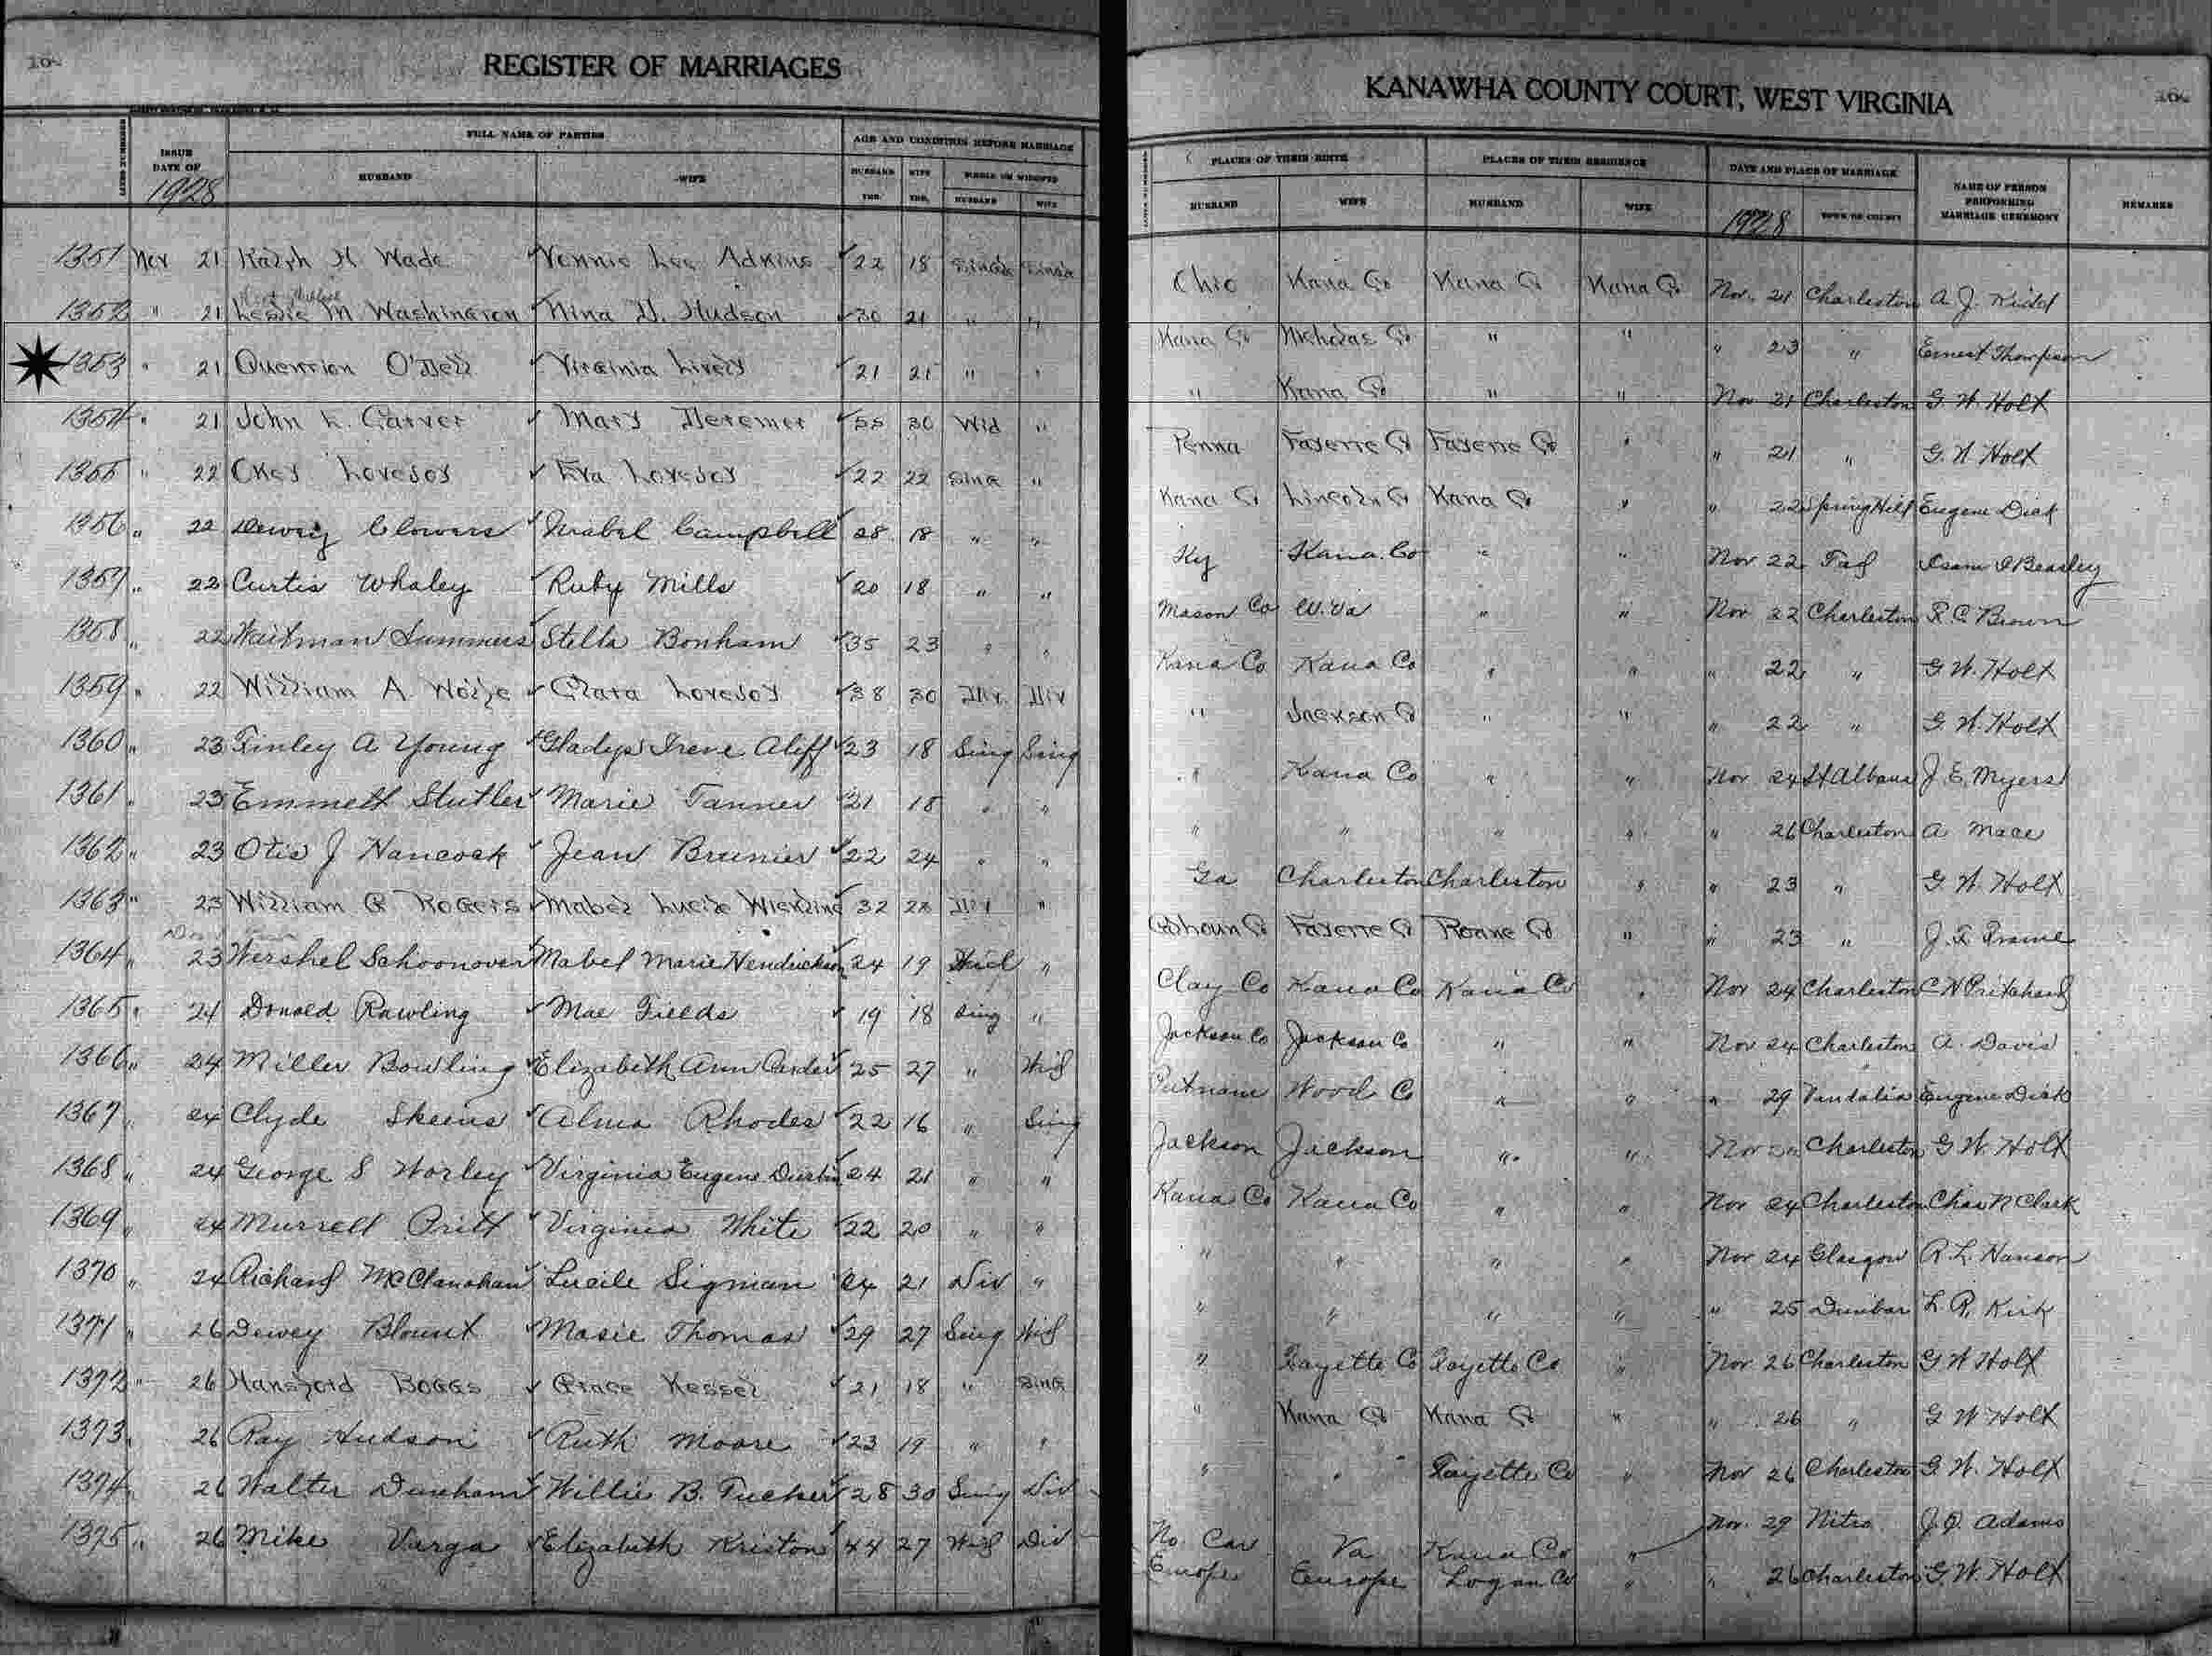 REGISTER OF MARRIAGES
FULL NAME OF PARTIES AGE AND CONDITION BEFORE MARRIAGE
ISSUE DATE OF 1928 HUSBAND WIFE HUSBAND YRS. WIFE YRS. SINGLE OR WIDOWED HUSBAND WIFE
1351 Nov 21 Ralph H Wade Vennie Lee Adkins 22 18 Single Single
1352 " 21 Leslie M Washington Nina D. Hudson 30 21 " "
1353 " 21 Quention O'Dell Virginia Lively 21 21 " "
1354 " 21 John L. Carver Mary Deremer 55 30 Wid "
1355 " 22 Okey Lovejoy Eva Lovejoy 22 22 Sing "
1356 " 22 Dewey Clowers Mabel Campbell 28 18 " "
1357 " 22 Curtis Whaley Ruby Mills 20 18 " "
1358 " 22 Waitman Summers Stella Bonham 35 23 " "
1359 " 22 William A Wolfe Clara Lovejoy 38 30 Div Div
1360 " 23 Finley A Young Gladys Irene Aliff 23 18 Sing Sing
1361 " 23 Emmett Stutler Marie Tanner 21 18 " "
1362 " 23 Otis J Hancock Jean Brunier 22 24 " "
1363 " 23 William C Rogers Mabel Lucile 32 Div "
1364 " 23 Hershel Schoonover Mabel Marie Hendrickson 24 19 Wid "
1365 " 24 Donald Rawling Mae Fields 19 18 Sing "
1366 " 24 Miller Bowling Elizabeth Ann Carder 25 27 " Wid
1367 " 24 Clyde Skeens Alma Rhodes 22 16 " Sing
1368 " 24 George S Worley Virginia Eugene Durbin 24 21 " "
1369 " 24 Murrell Pritt Virginia White 22 20 " "
1370 " 24 Richard McClanahan Lucile Sigman 24 21 Div "
1371 " 26 Dewey Blount Masie Thomas 29 27 Sing Wid
1372 " 26 Hansford Boggs Grace Kessel 21 18 " Sing
1373 " 26 Ray Hudson Ruth Moore 23 19 " "
1374 " 26 Walter Dunham Willie B. Tucker 28 30 Sing Div
1375 " 26 Mike Varga Elizabeth Kriston 44 27 Wid Div
KANAWHA COUNTY COURT, WEST VIRGINIA
PLACES OF THEIR BIRTH PLACES OF THEIR RESIDENCE DATE AND PLACE OF MARRIAGE NAME OF PERSON PERFORMING MARRIAGE CEREMONY REMARKS
HUSBAND WIFE HUSBAND WIFE 1928 TOWN OR COUNTY
Ohio Kana Co Kana Co Kana Co Nov. 21 Charleston A J. Kidd
Kana Co Nicholas Co " " " 23 " Ernest Thompson
" Kana Co " " Nov 21 Charleston G. W. Holt
Penna Fayette Co Fayette Co " " 21 " G. W. Holt
Kana Co Lincoln Co Kana Co " " 22 Spring Hill Eugene Dick
Ky Kana. Co " " Nov 22 Beasley
Mason Co W. Va " " Nov 22 Charleston R. C. Brown
Kana Co Kana Co " " " 22 " G. W. Holt
" Jackson Co " " " 22 " G. W. Holt
" Kana Co " " Nov 24 St Albans J. E. Myers
" " " " " 26 Charleston A Mace
Ga Charleston Charleston " " 23 " G. W. Holt
Calhoun Co Fayette Co Roane Co " " 23 "
Clay Co Kana Co Kana Co " Nov 24 Charleston C H Pritchard
Jackson Co Jackson Co " " Nov 24 Charleston A. Davis
Putnam Wood Co " " " 29 Vandalia Eugene Dick
Jackson Jackson " " Nov Charleston G. W. Holt
Kana Co Kana Co " " Nov 24 Charleston Chas N Clark
" " " " Nov 24 Glasgow R. L. Hanson
" " " " " 25 Dunbar L. R. Kirk
" Fayette Co Fayette Co " Nov 26 Charleston G W Holt
" Kana Co Kana Co " " 26 " G W Holt
" " Fayette Co " Nov 26 Charleston G. W. Holt
No Car Va Kana Co " Nov. 29 Nitro J. Q. Adams
Europe Europe Logan Co " " 26 Charleston G. W. Holt